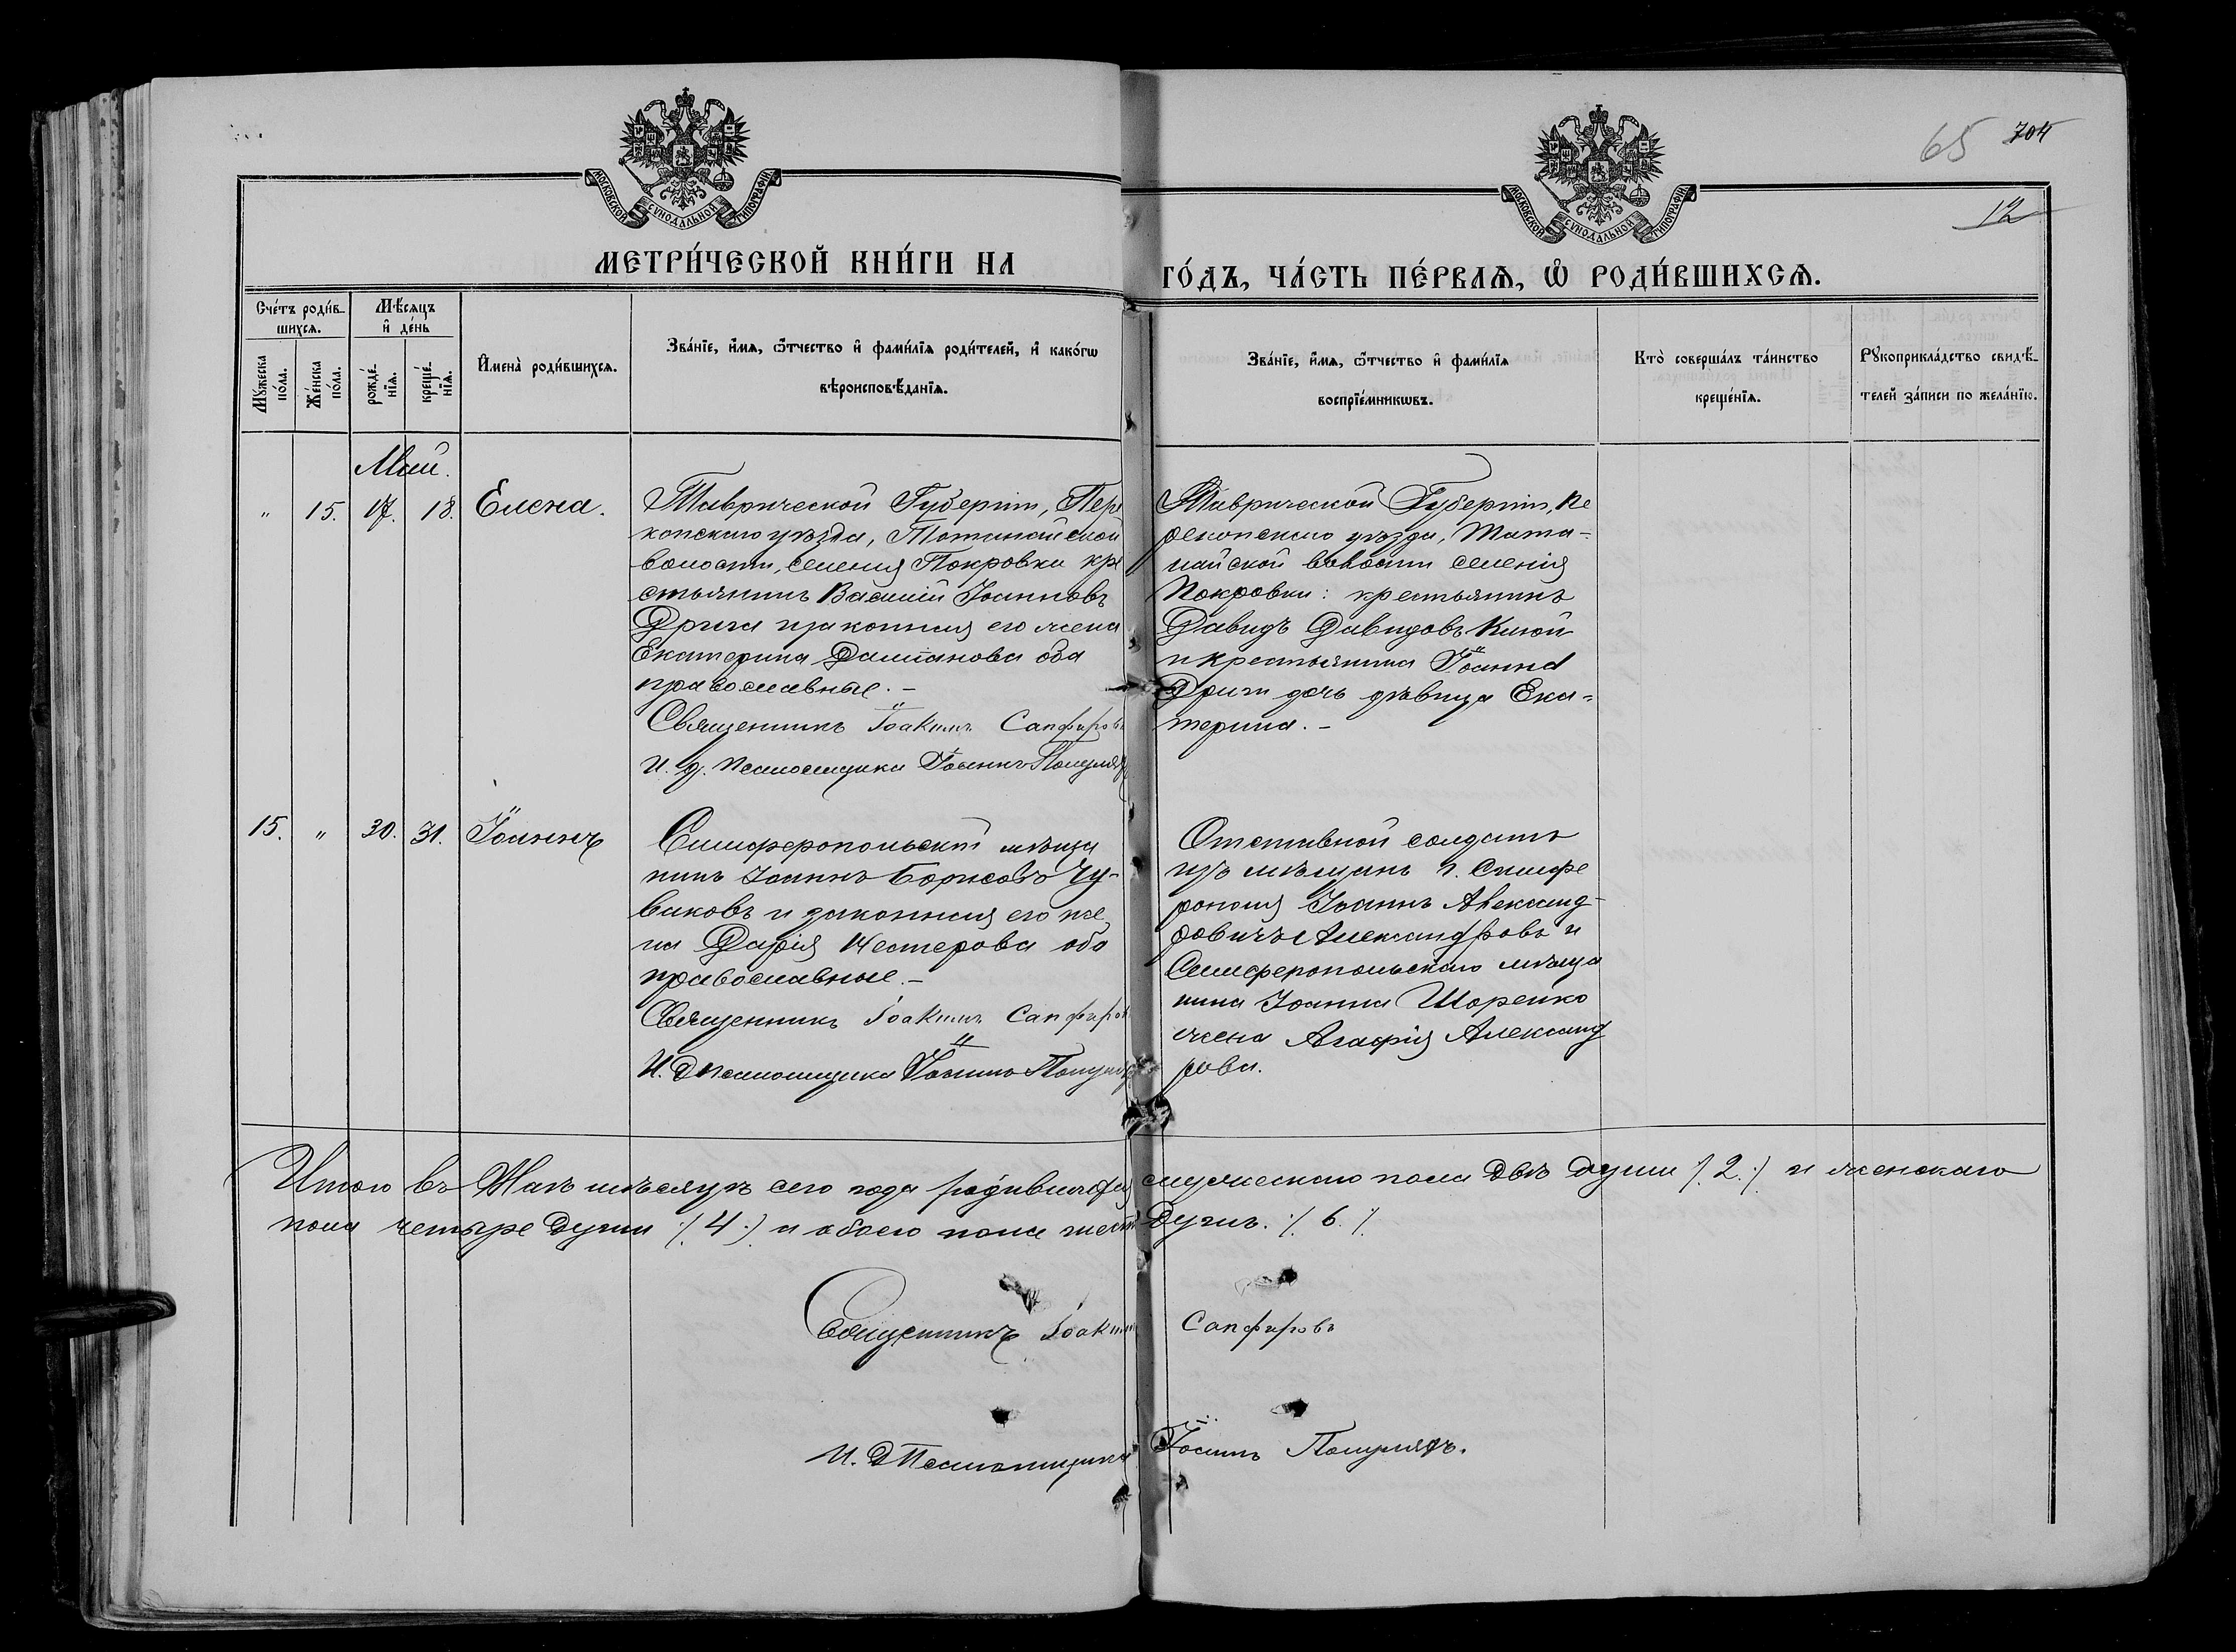 65 704
12
МОСКОВСКОЙ СѴНОДАЛЬНОЙ ТИПОГРАФІИ
МОСКОВСКОЙ СѴНОДАЛЬНОЙ ТИПОГРАФІИ
МЕТРИ́ЧЕСКОЙ КНИ́ГИ НА
ГО́ДЪ, ЧА́СТЬ ПЕ́РВАѦ, Ѡ҆ РОДИ́ВШИХСѦ.
Сче́тъ роди́в-
шихсѧ.
Мꙋ́жеска по́ла.
Же́нска по́ла.
Мѣ́сѧцъ
и҆ де́нь
рожде́-нїѧ.
креще́-нїѧ.
И҆мена̀ роди́вшихсѧ.
Зва́нїе, и҆́мѧ, ѻ҆́тчество и҆ фами́лїѧ роди́телей, и҆ како́гѡ
вѣроисповѣ́данїѧ.
Зва́нїе, и҆́мѧ, ѻ҆́тчество и҆ фами́лїѧ
воспрїе́мникѡвъ.
Кто̀ соверша́лъ та́инство
креще́нїѧ.
Рꙋкоприкла́дство свидѣ́-
телей за́писи по жела́нїю.
Май.
" 15. 17. 18. Елена.
Таврической Губерніи, Пере
копскаго уѣзда, Тотанайской
волости, селенія Покровки кре
стьянинъ Василій Іоанновъ
Дрига и законная его жена
Екатерина Даміанова оба
православные. –
Священникъ Іоакимъ Сапфировъ
И. д. псаломщика Іоаннъ
Таврической Губерніи, Пе
рекопскаго уѣзда, Тота-
найской волости селенія
Покровки: крестьянинъ
Давидъ Давидовъ Клюй
и крестьянина Іоанна
Дриги дочь дѣвица Ека-
терина. –
15. " 30. 31. Іоаннъ
Симферопольскій мѣща
нинъ Іоаннъ Борисовъ Чу-
ваковъ и законная его же
на Дарія Нестерова оба
православные. –
Священникъ Іоакимъ Сапфировъ
И. Д псаломщика Іоаннъ
Отставной солдатъ
изъ мѣщанъ г. Симфе
рополя Іоаннъ Александ-
ровичъ Александровъ и
Симферопольскаго мѣща
нина Іоанна Шоренко
жена Агафія Александ
рова.
Итого въ Маѣ мѣсяцѣ сего года родившихся мужескаго пола двѣ души /. 2 ./ и женскаго
пола четыре души /. 4 ./ и обоего пола шесть душъ. /. 6 ./
Священникъ Іоакимъ Сапфировъ
И. Д Псаломщика Іоаннъ